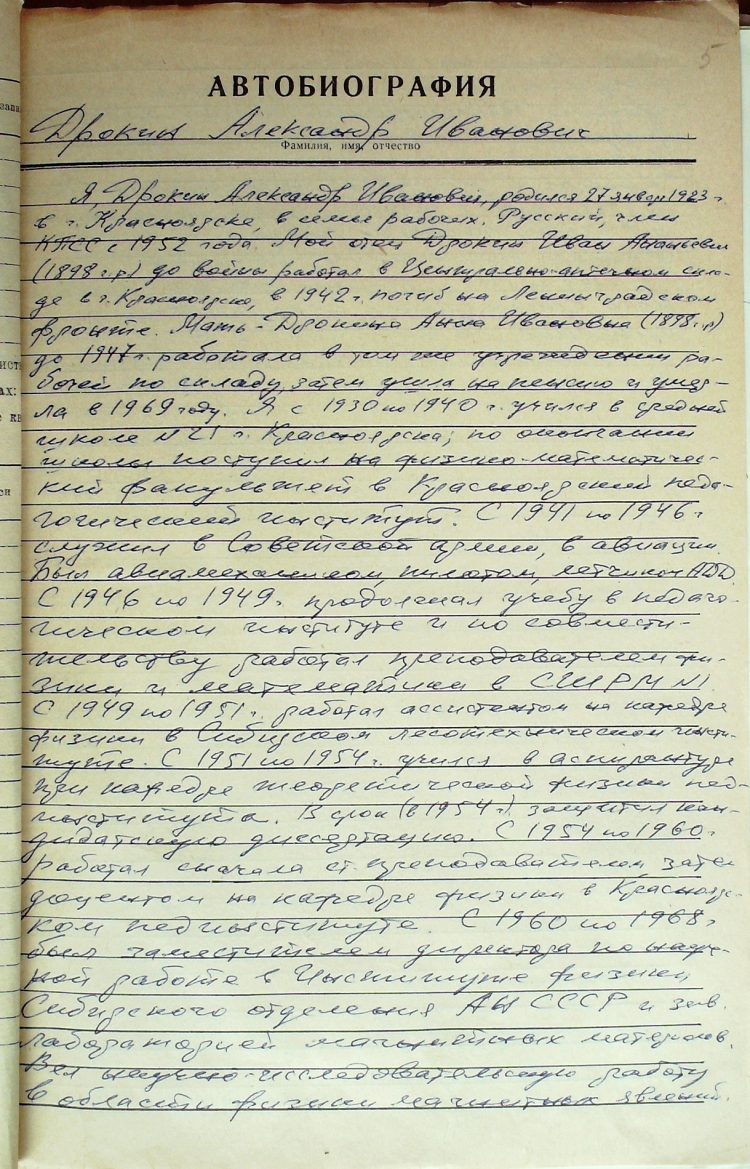 5
АВТОБИОГРАФИЯ
Дрокин Александр Иванович
Фамилия, имя, отчество
Я, Дрокин Александр Иванович, родился 27 января 1923 г.
в г. Красноярске, в семье рабочих. Русский, член
КПСС с 1952 года. Мой отец Дрокин Иван Ананьевич
(1898 г.р) до войны работал в Центрально-аптечном скла-
де в г. Красноярске, в 1942 г. погиб на Ленинградском
фронте. Мать - Дрокина Анна Ивановна (1898 г.р)
до 1947 г. работала в том же учреждении ра-
бочей по складу, затем ушла на пенсию и умер-
ла в 1969 году. Я с 1930 по 1940 г. учился в средней
школе N 21 г. Красноярска; по окончании
школы поступил на физико-математичес-
кий факультет в Красноярский педа-
гогический институт. С 1941 по 1946 г
служил в Советской армии, в авиации.
Был авиамехаником, пилотом, летчиком АДД.
С 1946 по 1949 г. продолжал учебу в педаго-
гическом институте и по совмести-
тельству работал преподавателем фи-
зики и математики в СШРМ N1.
С 1949 по 1951 г. работал ассистентом на кафедре
физики в Сибирском лесотехническом инсти-
туте. С 1951 по 1954 г. учился в аспирантуре
при кафедре теоретической физики пед-
института. В срок (в 1954 г.) защитил кан-
дидатскую диссертацию. С 1954 по 1960 г
работал сначала ст. преподавателем, затем
доцентом на кафедре физики в Краснояр-
ком пединституте. С 1960 по 1968 г
был заместителем директора по науч-
ной работе в Институте физики
Сибирского отделения АН СССР и зав.
лабораторией магнитных материалов.
Вел научно-исследовательскую работу
в области физики магнитных явлений.